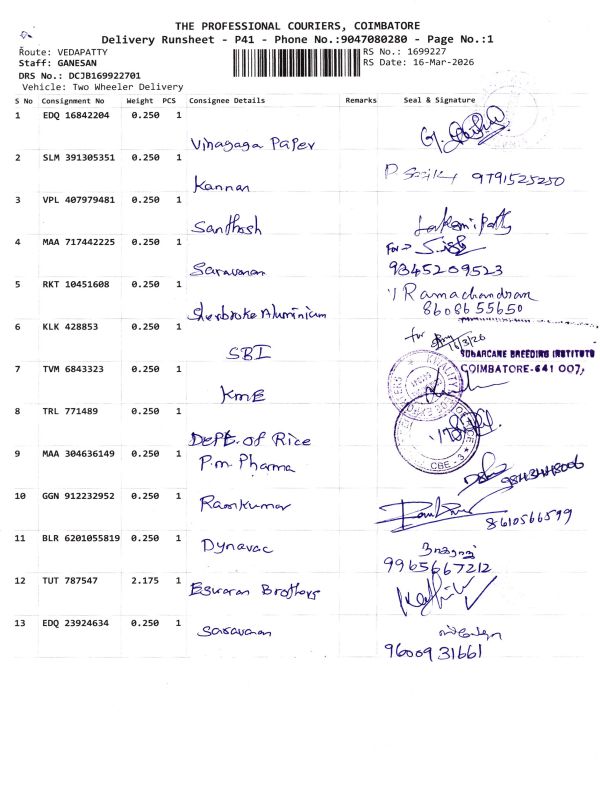 THE PROFESSIONAL COURIERS, COIMBATORE
Delivery Runsheet - P41 - Phone No.:9047080280 - Page No.:1
Route: VEDAPATTY
RS No.: 1699227
Staff: GANESAN
RS Date: 16-Mar-2026
DRS No.: DCJB169922701
Vehicle: Two Wheeler Delivery
S No Consignment No Weight PCS Consignee Details Remarks Seal & Signature
1 EDQ 16842204 0.250 1
Vinagaga Paper
2 SLM 391305351 0.250 1
Kannan 9791525250
3 VPL 407979481 0.250 1
Santhosh
4 MAA 717442225 0.250 1
Saravanan 9345209523
5 RKT 10451608 0.250 1 Ramachandran
Sherbroke Aluminium 8608655650
6 KLK 428853 0.250 1 for 16/3/26
SBI SUGARCANE BREEDING INSTITUTE
7 TVM 6843323 0.250 1 COIMBATORE-641 007,
KME
8 TRL 771489 0.250 1
DePt. of Rice
9 MAA 304636149 0.250 1 CBE - 3
P.m. Pharma
10 GGN 912232952 0.250 1
Ramkumar 8610566599
11 BLR 6201055819 0.250 1
Dynavac 9965667212
12 TUT 787547 2.175 1
Eswaran Brothers
13 EDQ 23924634 0.250 1
Saravanan
9600931661